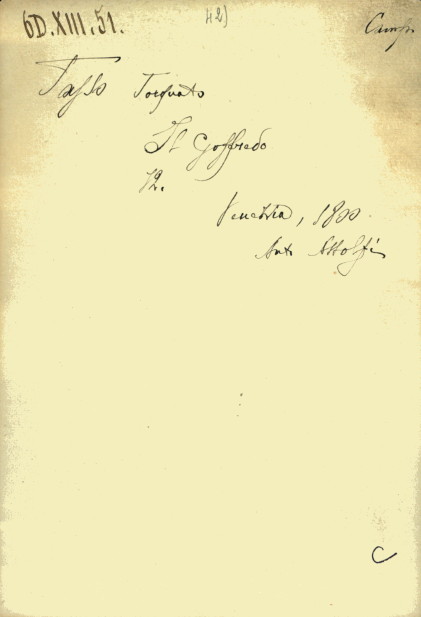 6D.XIII.51. 42) Camp.
Tasso Torquato
Il Goffredo
12.
Venezia, 1800.
Ant. Astolfi
C